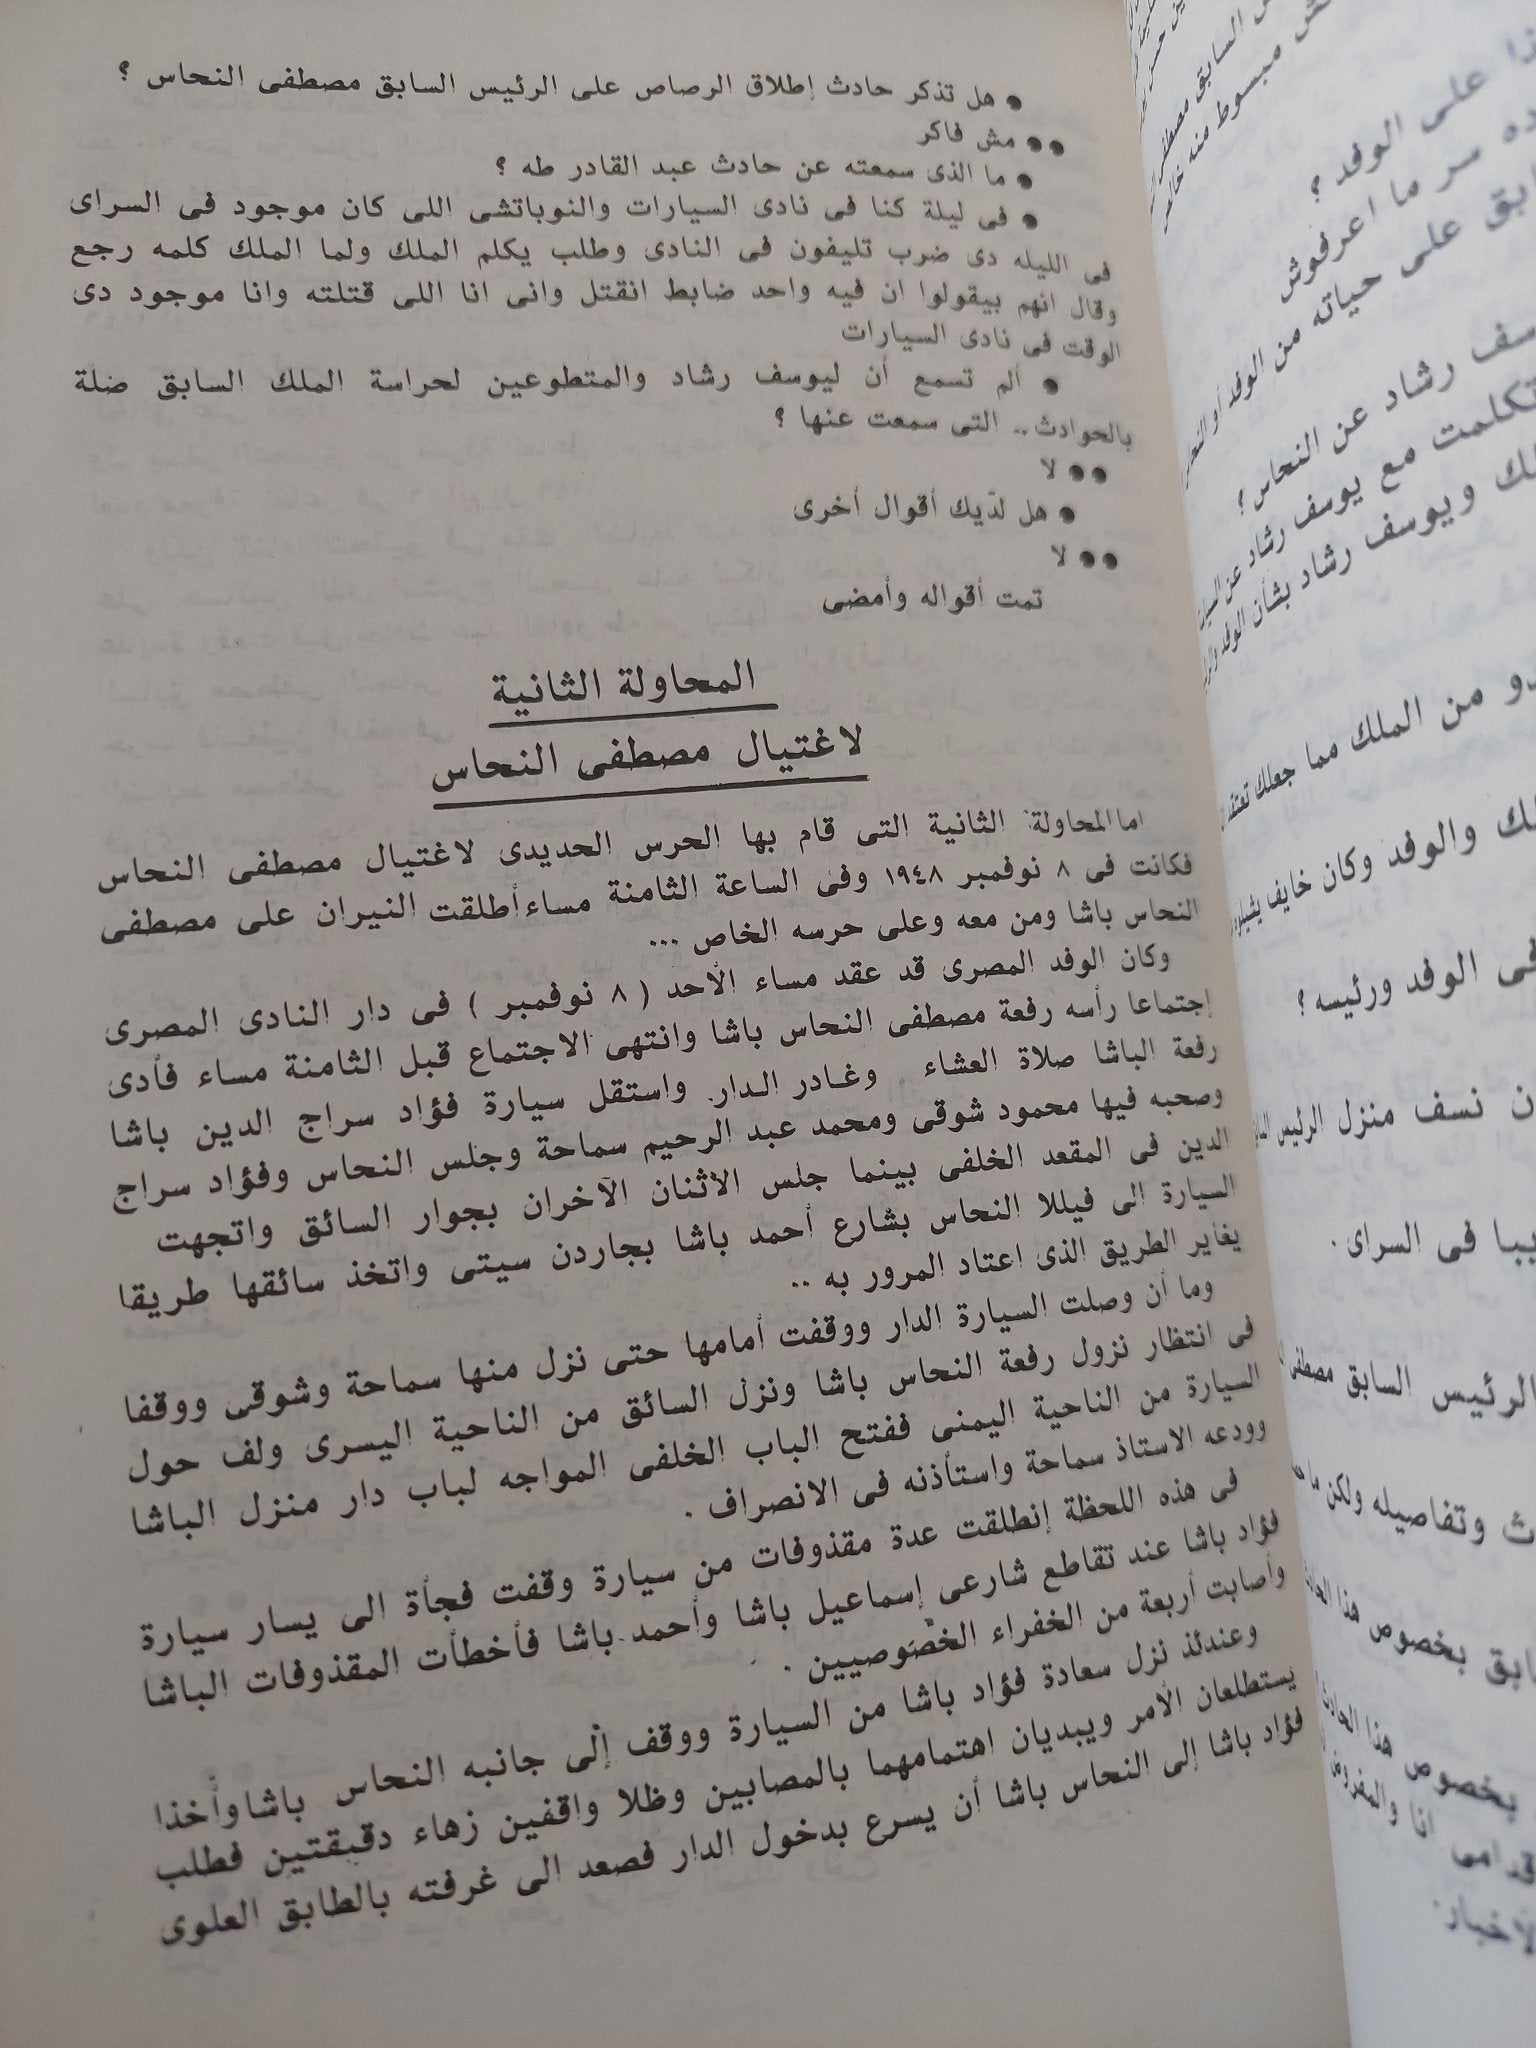 ● هل تذكر حادث إطلاق الرصاص على الرئيس السابق مصطفى النحاس ؟
●● مش فاكر
● ما الذى سمعته عن حادث عبد القادر طه ؟
● فى ليلة كنا فى نادى السيارات والنوباتشى اللى كان موجود فى السراى
فى الليله دى ضرب تليفون فى النادى وطلب يكلم الملك ولما الملك كلمه رجع
وقال انهم بيقولوا ان فيه واحد ضابط انقتل وانى انا اللى قتلته وانا موجود دى
الوقت فى نادى السيارات
● ألم تسمع أن ليوسف رشاد والمتطوعين لحراسة الملك السابق ضلة
بالحوادث .. التى سمعت عنها ؟
●● لا
● هل لديك أقوال أخرى
●● لا
تمت أقواله وأمضى
المحاولة الثانية
لاغتيال مصطفى النحاس
اما المحاولة الثانية التى قام بها الحرس الحديدى لاغتيال مصطفى النحاس
فكانت فى ٨ نوفمبر ١٩٤٨ وفى الساعة الثامنة مساء أطلقت النيران على مصطفى
النحاس باشا ومن معه وعلى حرسه الخاص ...
وكان الوفد المصرى قد عقد مساء الأحد ( ٨ نوفمبر ) فى دار النادى المصرى
إجتماعا رأسه رفعة مصطفى النحاس باشا وانتهى الاجتماع قبل الثامنة مساء فأدى
رفعة الباشا صلاة العشاء وغادر الدار واستقل سيارة فؤاد سراج الدين باشا
وصحبه فيها محمود شوقى ومحمد عبد الرحيم سماحة وجلس النحاس وفؤاد سراج
الدين فى المقعد الخلفى بينما جلس الأثنان الآخران بجوار السائق واتجهت
السيارة الى فيللا النحاس بشارع أحمد باشا بجاردن سيتى واتخذ سائقها طريقا
يغاير الطريق الذى اعتاد المرور به ..
وما أن وصلت السيارة الدار ووقفت أمامها حتى نزل منها سماحة وشوقى ووقفا
فى انتظار نزول رفعة النحاس باشا ونزل السائق من الناحية اليسرى ولف حول
السيارة من الناحية اليمنى ففتح الباب الخلفى المواجه لباب دار منزل الباشا
وودعه الاستاذ سماحة واستأذنه فى الانصراف .
فى هذه اللحظة إنطلقت عدة مقذوفات من سيارة وقفت فجأة الى يسار سيارة
فؤاد باشا عند تقاطع شارعى إسماعيل باشا وأحمد باشا فأخطأت المقذوفات الباشا
وأصابت أربعة من الخفراء الخصوصيين .
وعندئذ نزل سعادة فؤاد باشا من السيارة ووقف إلى جانبه النحاس باشا وأخذا
يستطلعان الأمر ويبديان اهتمامهما بالمصابين وظلا واقفين زهاء دقيقتين فطلب
فؤاد باشا إلى النحاس باشا أن يسرع بدخول الدار فصعد الى غرفته بالطابق العلوى
السابق مصطفى
مبسوط منه
على الوفد ؟
سر ما اعرفوش
على حياته من الوفد أو
رشاد عن النحاس ؟
تكلمت مع يوسف رشاد عن
ويوسف رشاد بشأن الوفد
من الملك مما جعلك تعتقد
والوفد وكان خايف
فى الوفد ورئيسه ؟
نسف منزل الرئيس
فى السراى .
الرئيس السابق مصطفى
وتفاصيله ولكن ما
بخصوص هذا
بخصوص هذا الحادث
انا والمفروض